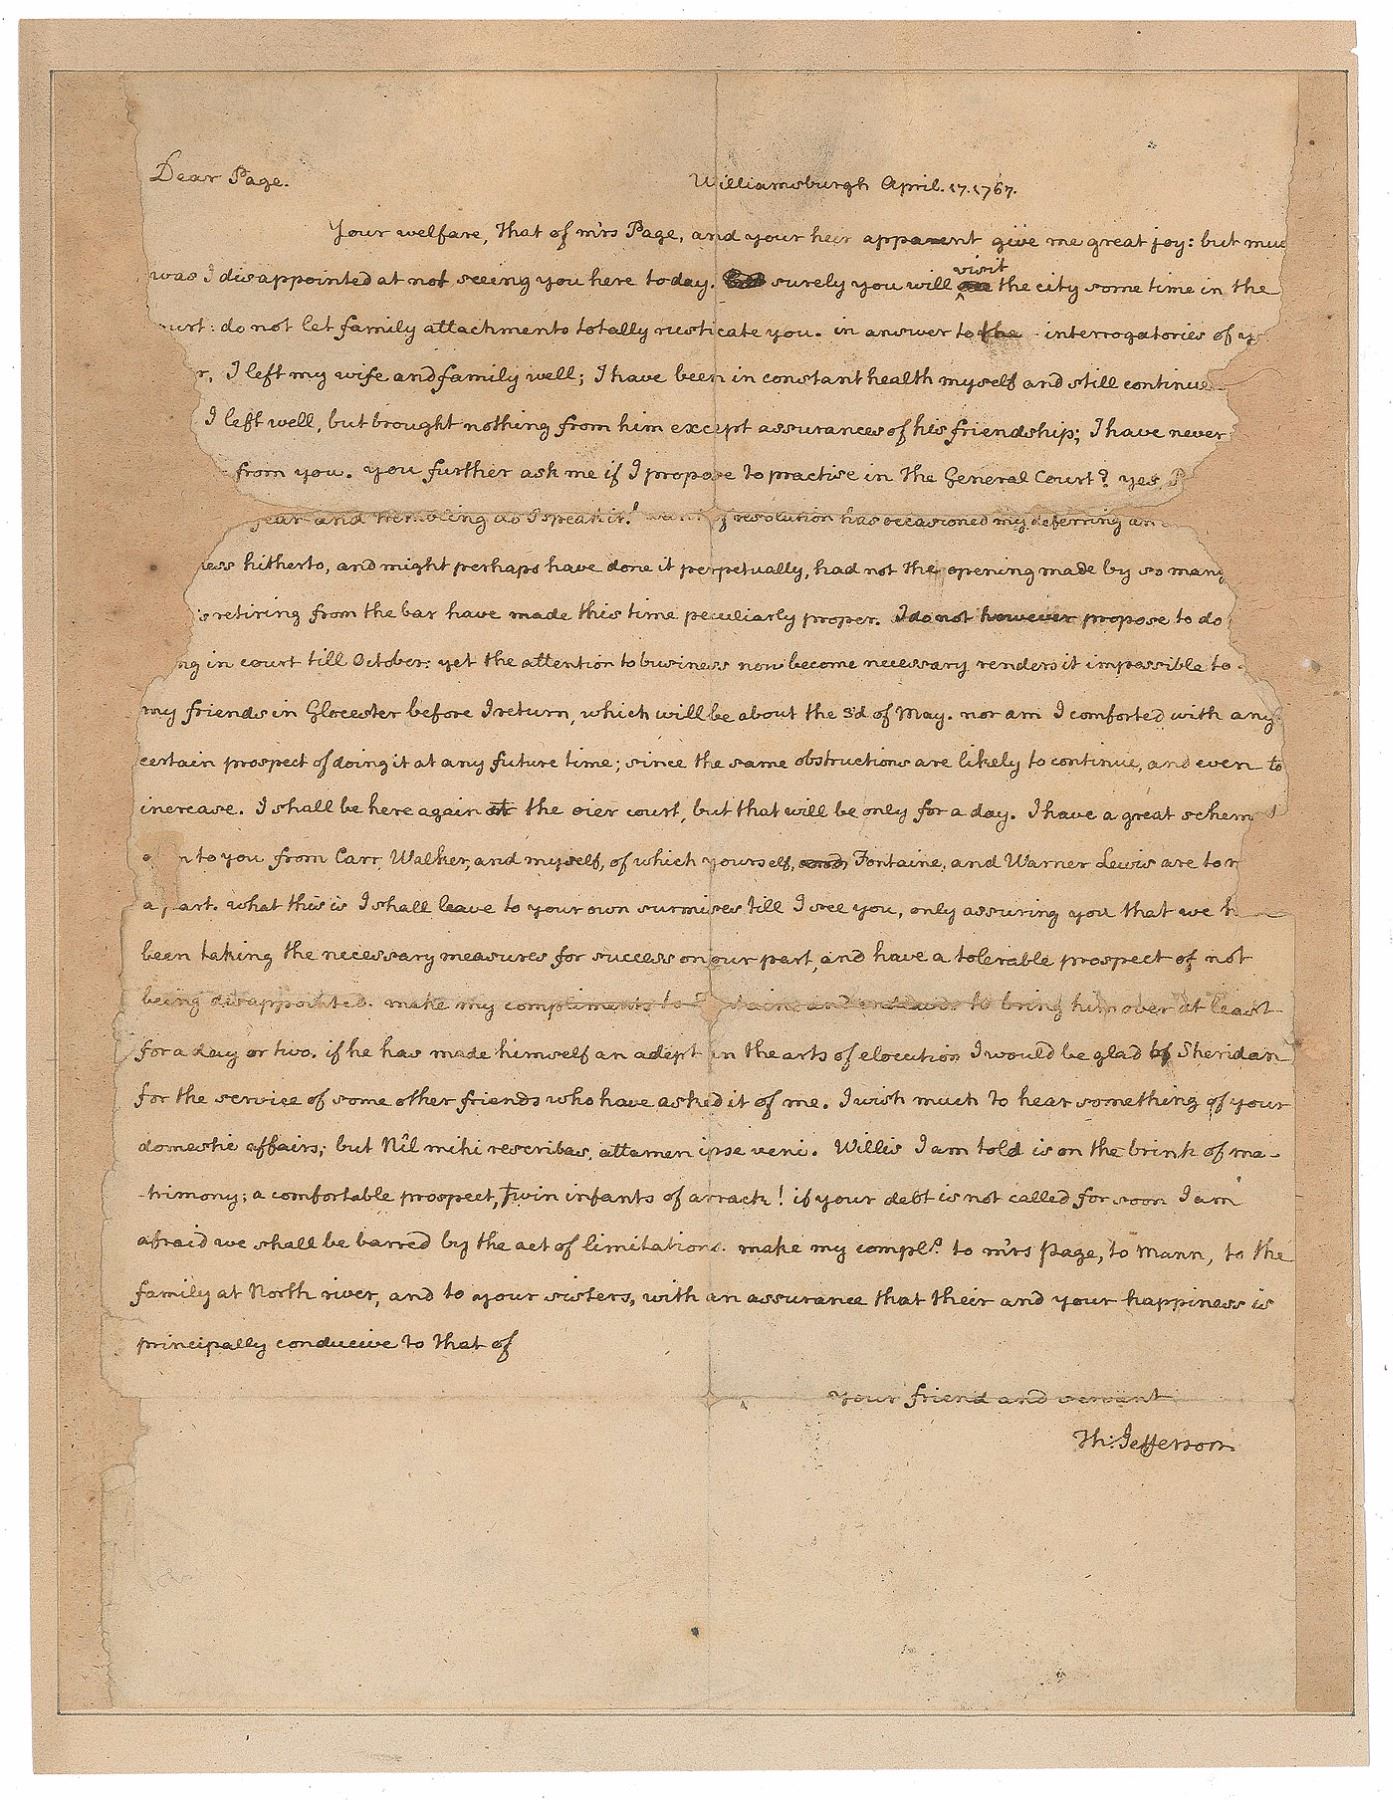 Dear Page.
Williamsburgh April. 17. 1767.
Your welfare, that of mrs Page, and your heir apparent give me great joy: but
was I disappointed at not seeing you here today. surely you will visit the city some time in the
do not let family attachments totally rusticate you. in answer to the interrogatories of
I left my wife and family well; I have been in constant health myself and still continue
I left well, but brought nothing from him except assurances of his friendship; I have never
from you. you further ask me if I propose to practise in the General Court? yes
fear and trembling do I speak it! resolution has occasioned my deferring
hitherto, and might perhaps have done it perpetually, had not the opening made by so many
retiring from the bar have made this time peculiarly proper. I do not however propose to do
in court till October: yet the attention to business now become necessary renders it impossible to
my friends in Glocester before I return, which will be about the 3d of May. nor am I comforted with any
certain prospect of doing it at any future time; since the same obstructions are likely to continue, and even to
increase. I shall be here again at the oier court, but that will be only for a day. I have a great
to you from Carr, Walker, and myself, of which yourself, and Fontaine, and Warner Lewis are to
what this is I shall leave to your own surmises till I see you, only assuring you that we
been taking the necessary measures for success on our part, and have a tolerable prospect of not
being disappointed. make my compliments to and endeavor to bring him over at least
for a day or two. if he has made himself an adept in the arts of elocution I would be glad of Sheridan
for the service of some other friends who have asked it of me. I wish much to hear something of your
domestic affairs; but Nil mihi rescribas, attamen ipse veni. Willis I am told is on the brink of ma-
-trimony; a comfortable prospect, twin infants of arrack! if your debt is not called for soon I am
afraid we shall be barred by the act of limitations. make my compls. to mrs Page, to Mann, to the
family at North river, and to your sisters, with an assurance that their and your happiness is
principally conducive to that of
your friend and servant
Th: Jefferson